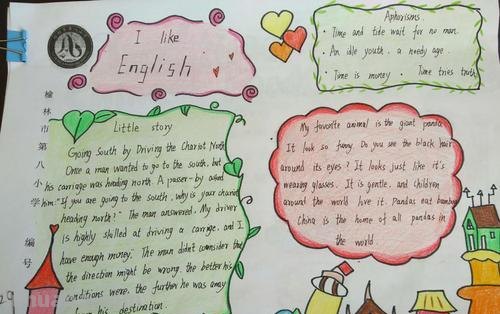 I like
English
Aphorisms.
· Time and tide wait for no man.
· An idle youth, a needy age.
· Time is money · Time tries truth
榆林市第八小学
编号
Little story
Going South by Driving the Chariot North
Once a man wanted to go to the south, but
his carriage was heading north. A passer-by asked
him: "If you are going to the south, why is your chariot
heading north?" The man answered, My driver
is highly skilled at driving a carriage, and I
have enough money. The man didn't consider that
the direction might be wrong, the better his
conditions were, the further he was away
his destination.
My favorite animal is the giant panda
It look so funny. Do you see the black hair
around its eyes? It looks just like it's
wearing glasses. It is gentle, and children
around the world love it. Pandas eat bamboo
China is the home of all pandas in
the world